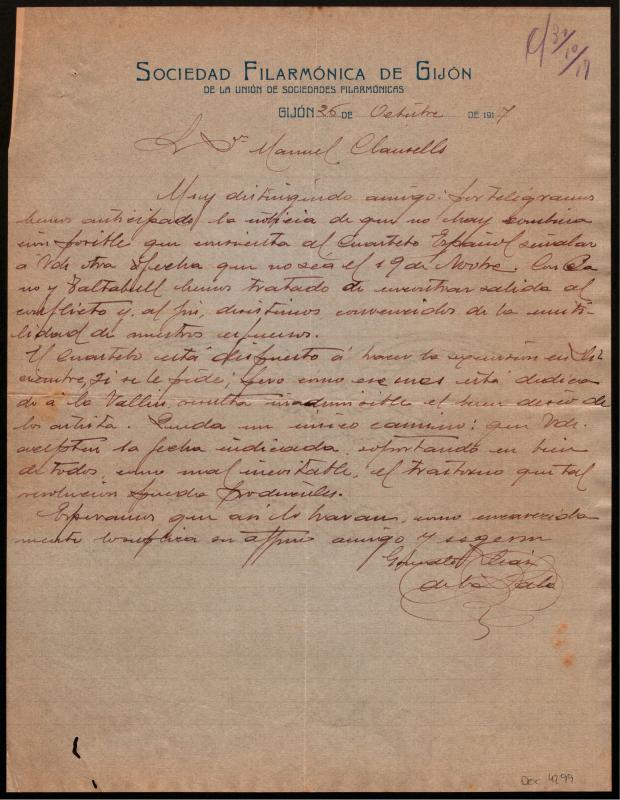 C/ 31/10/17
SOCIEDAD FILARMÓNICA DE GIJÓN
DE LA UNIÓN DE SOCIEDADES FILARMÓNICAS
GIJÓN 26 DE Octubre DE 1917
S. Dn. Manuel Clausells
Muy distinguido amigo: por telegrama
hemos anticipado la noticia de que no hay combina
ción posible que consienta al Cuarteto Español señalar
á Vds otra fecha que no sea el 19 de Novbre. Con Ca
no y Saltabell hemos tratado de encontrar salida al
conflicto y, al fin, desistimos convencidos de la inuti-
lidad de nuestros esfuerzos.
El Cuarteto está dispuesto á hacer la excursión en Di-
ciembre, si se le pide; pero como ese mes está dedica
do á la Vallin resulta inadmisible el buen deseo de
los artista. Queda un único camino: que Vds.
acepten la fecha indicada, soportando en bien
de todos, como mal inevitable, el trastorno que tal
resolución pueda producirles.
Esperamos que así lo harán, como encarecida
mente lo suplica su affmo amigo y s
Gonzalo
de la
Doc 4299